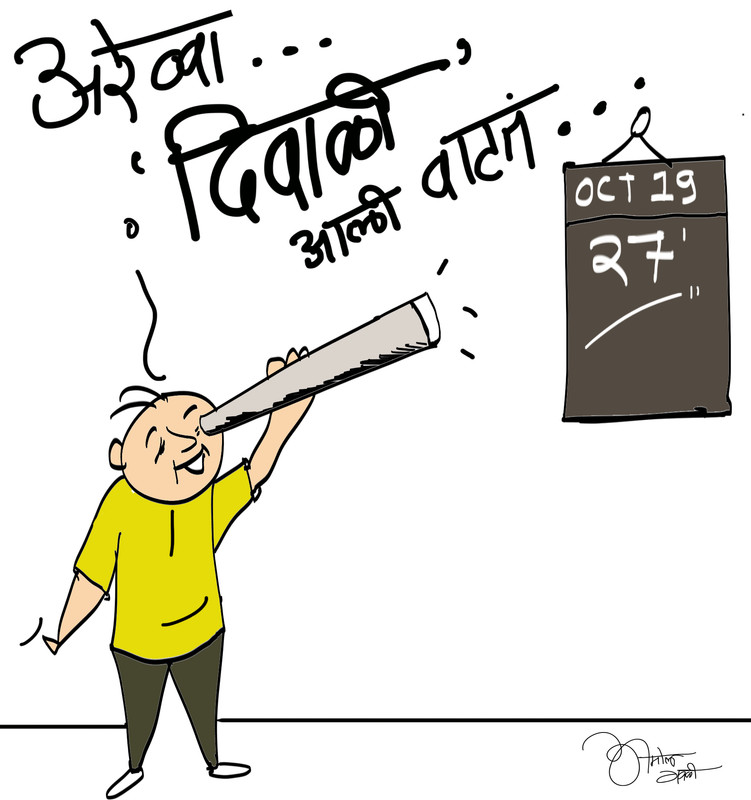 अरेव्वा...
दिवाळी,
आली वाटतं...
OCT 19
२७
अमोल